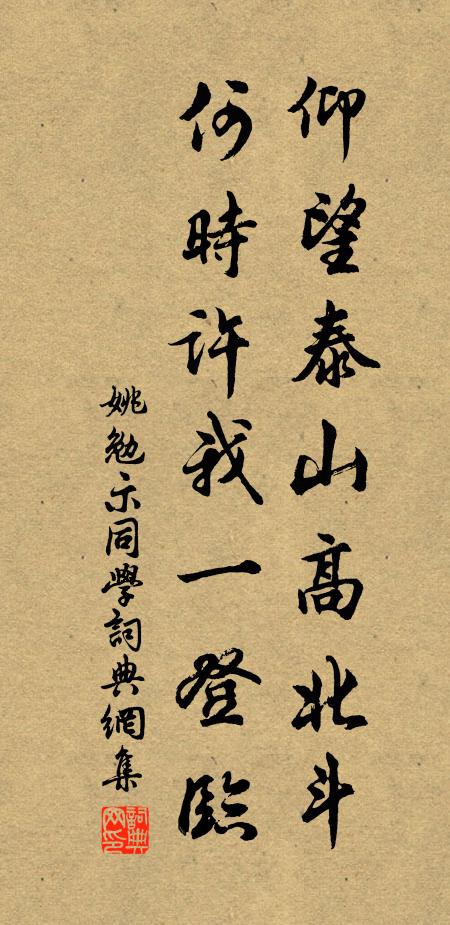 仰望泰山高北斗
何時許我一登臨
姚勉示同學詞典網集
詞典網印